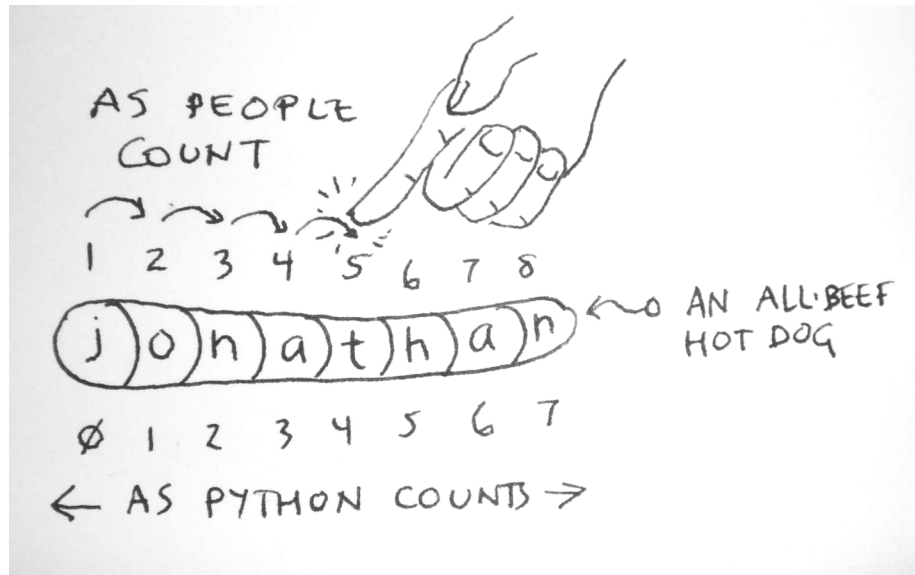 AS PEOPLE
COUNT
1 2 3 4 5 6 7 8
jonathan
AN ALL·BEEF
HOT DOG
0 1 2 3 4 5 6 7
← AS PYTHON COUNTS →